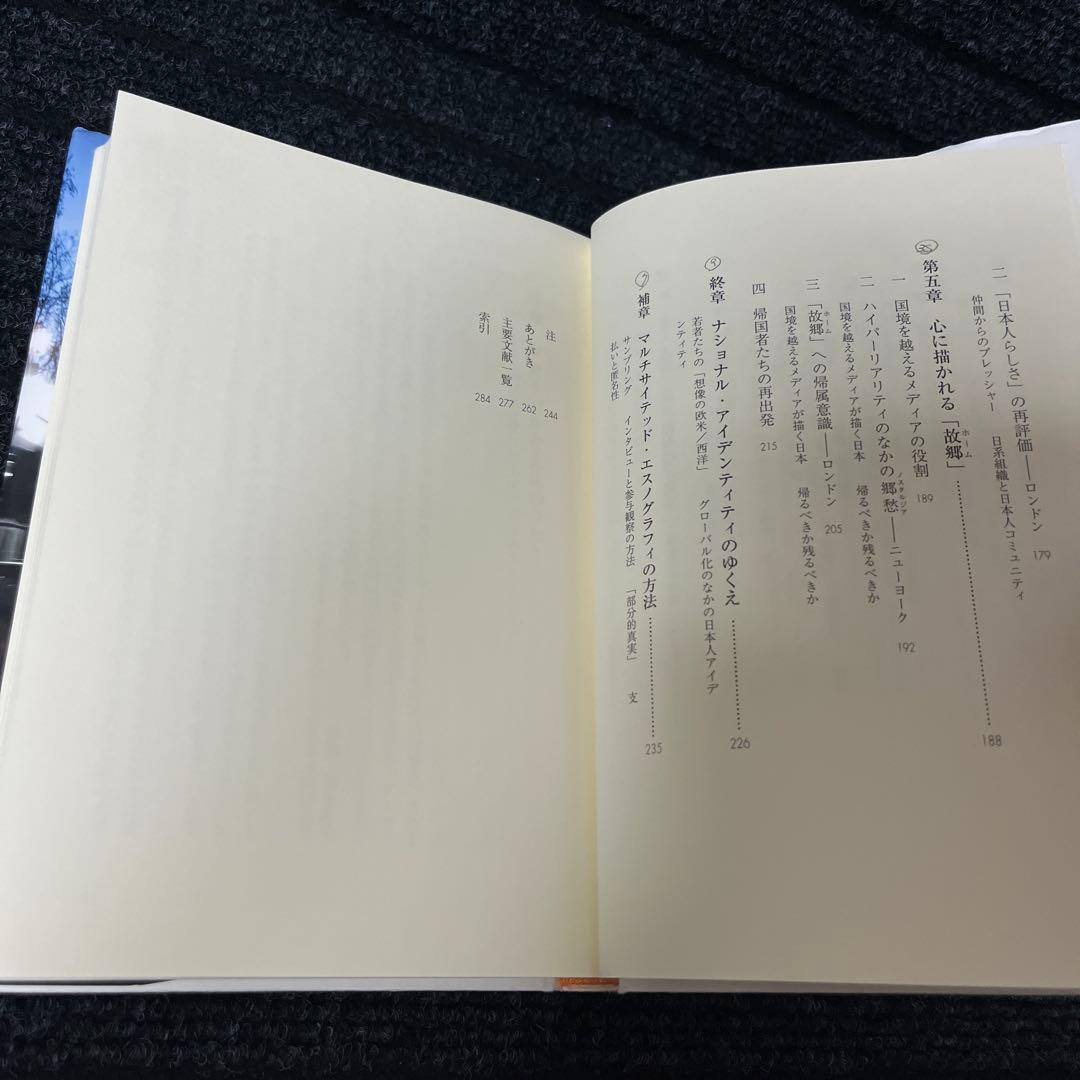 二 「日本人らしさ」の再評価――ロンドン 179
仲間からのプレッシャー 日系組織と日本人コミュニティ
35 第五章 心に描かれる「故郷」 188
ホーム
一 国境を越えるメディアの役割 189
二 ハイパーリアリティのなかの郷愁――ニューヨーク 192
ノスタルジア
国境を越えるメディアが描く日本 帰るべきか残るべきか
三 「故郷」への帰属意識――ロンドン 205
ホーム
国境を越えるメディアが描く日本 帰るべきか残るべきか
四 帰国者たちの再出発 215
9 終章 ナショナル・アイデンティティのゆくえ 226
若者たちの「想像の欧米/西洋」 グローバル化のなかの日本人アイデ
ンティティ
補章 マルチサイテッド・エスノグラフィの方法 235
サンプリング インタビューと参与観察の方法 「部分的真実」 支
払いと匿名性
注 244
あとがき 262
主要文献一覧 277
索引 284